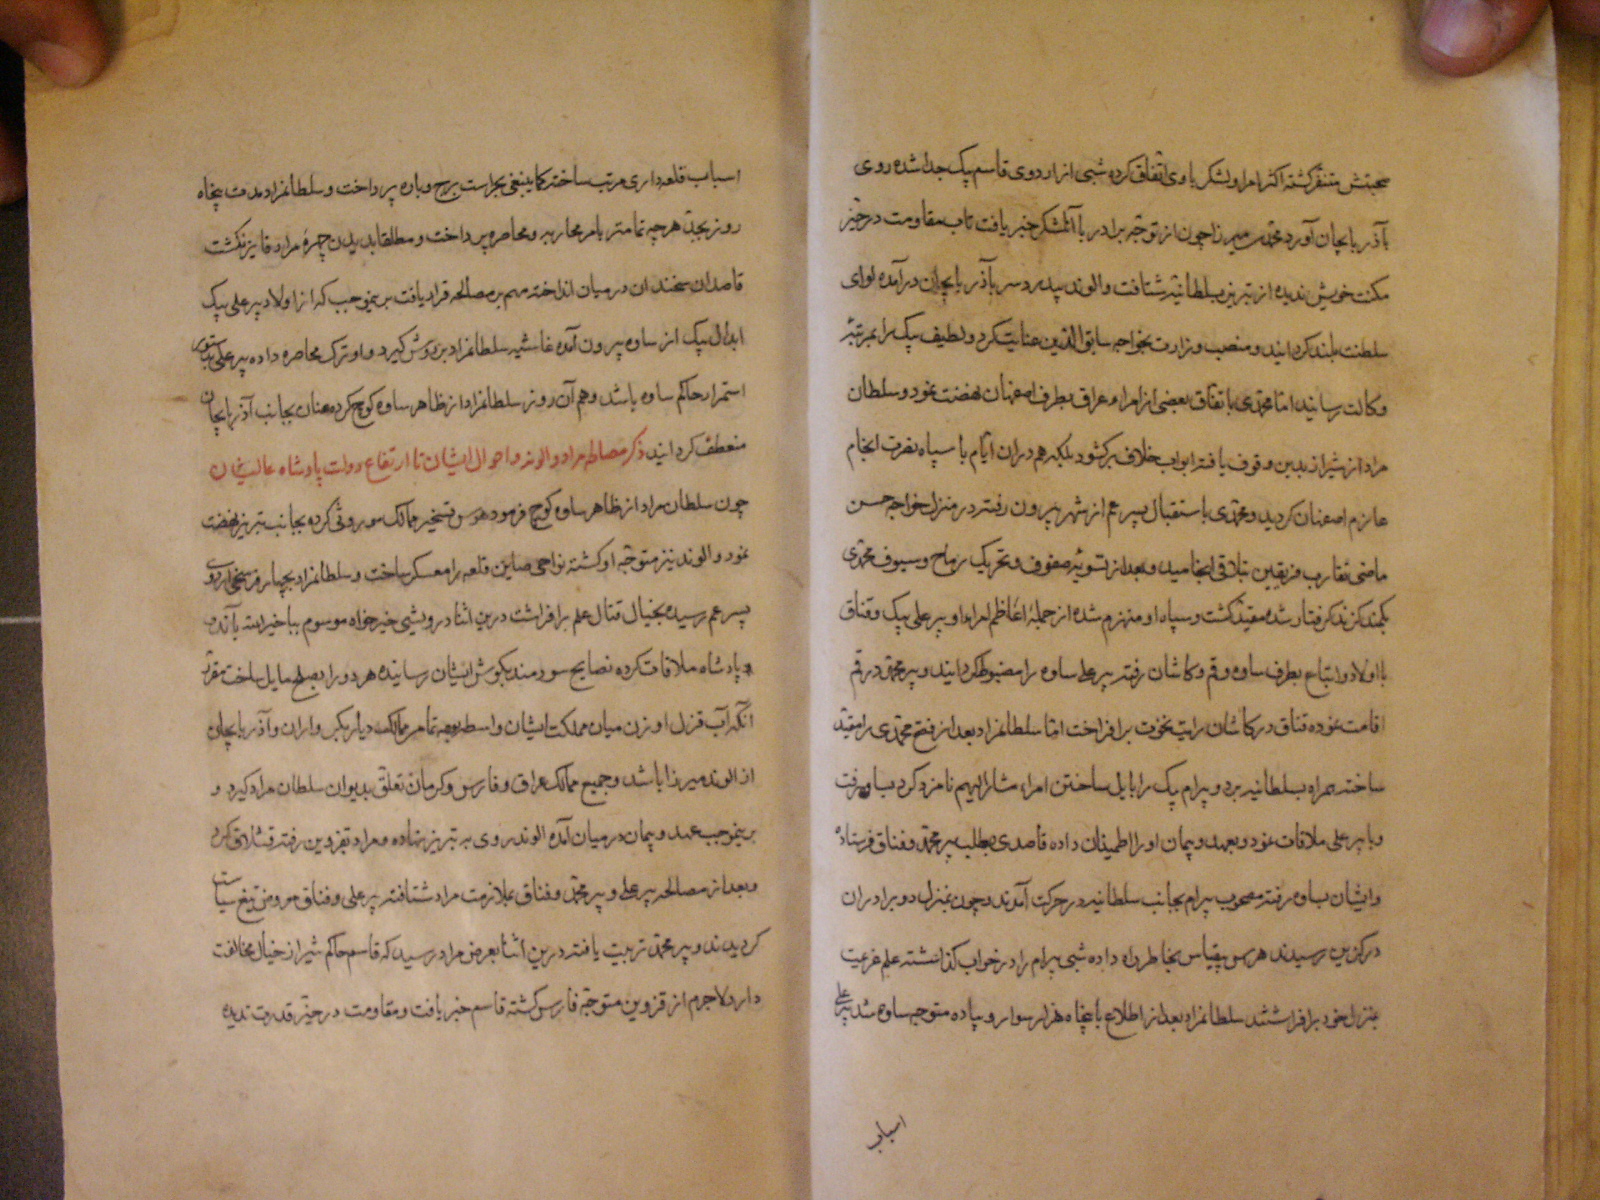 صحبتش متنفر گشته اکثر امرا و لشکر با وی اتفاق کرده شبی از اردوی قاسم بیک جدا شده روی
بآذربایجان آورد محمدی میرزا چون از توجه برادر با آن لشکر خبر یافت تاب مقاومت در حیز
مکنت خویش ندیده از تبریز بسلطانیه شتافت و الوند بیدردسر بآذربایجان درآمده لوای
سلطنت بلند گردانید و منصب وزارت بخواجه سابق الدین عنایت کرد و لطیف بیک را بمرتبه
وکالت رسانید اما محمدی باتفاق بعضی از امراء عراق بطرف اصفهان نهضت نمود و سلطان
مراد از شیراز بدین وقوف یافته ابواب خلاف برگشود بلکه هم دران ایام با سپاه نصرت انجام
عازم اصفهان گردید و محمدی باستقبال پسر عم از شهر بیرون رفته در منزل خواجه حسن
ماضی تقارب فریقین بتلاقی انجامید و بعد از تسویه صفوف و تحریک رماح و سیوف محمدی
بکمند گزند گرفتار شده مقید گشت و سپاه او منهزم شده از جمله اعاظم امراء او پیر علی بیک و قناق
با اولاد و اتباع بطرف ساوه و قم و کاشان رفته پیر علی ساوه را مضبوط گردانید و پیر محمد در قم
اقامت نموده قناق در کاشان رایت نخوت برافراخت اما سلطانمراد بعد از فتح محمدی را مقید
ساخته همراه بسلطانیه برد و بیرام بیک را بایل ساختن امراء مشار الیهم نامزد کرد بساوه رفت
و با پیر علی ملاقات نمود و بعهد و پیمان او را اطمینان داده قاصدی بطلب پیر محمد و قناق فرستاد
و ایشان بساوه رفته مصحوب بیرام بجانب سلطانیه در حرکت آمدند و چون بمنزل دو برادران
درگزین رسیدند هراس بیقیاس بخاطر راه داده شبی بیرام را در خواب گذاشته علم عزیمت
بمنزل خود برافراشتند سلطانمراد بعد از اطلاع با پنجاه هزار سوار و پیاده متوجه ساوه شد پیر علی
اسباب
اسباب قلعه‌داری مرتب ساخته کما ینبغی بحراست برج و باره پرداخت و سلطانمراد مدت پنجاه
روز بجد هر چه تمامتر بامر محاربه و محاصره پرداخت و مطلقا بدیدن چهره مراد فایز نگشت
قاصدان سخندان در میان انداخته مهم بر مصالحه قرار یافت برینموجب که از اولاد پیر علی بیک
ابدال بیک از ساوه بیرون آمده غاشیه سلطانمراد بر دوش گیرد و او ترک محاصره داده پیر علی بدستور
استمرار حاکم ساوه باشد و هم آن روز سلطانمراد از ظاهر ساوه کوچ کرده عنان بجانب آذربایجان
منعطف گردانید ذکر مصالحه مراد و الوند و احوال ایشان تا ارتفاع دولت پادشاه عالیشان
چون سلطان مراد از ظاهر ساوه کوچ فرمود هوس تسخیر ممالک موروثی کرده بجانب تبریز نهضت
نمود و الوند نیز متوجه او گشته نواحی صاین قلعه را معسکر ساخت و سلطانمراد بچهار فرسخی اردوی
پسر عم رسیده بخیال قتال علم برافراشت درین اثنا درویشی خیرخواه موسوم ببابا خیرالله با آن دو
پادشاه ملاقات کرده نصایح سودمند بگوش ایشان رسانیده هر دو را بصلح مایل ساخت مقرر
آنکه آب قزل اوزن میان مملکت ایشان واسطه بوده تمامر ممالک دیاربکر و اران و آذربایجان
از الوند میرزا باشد و جمیع ممالک عراق و فارس و کرمان تعلق بدیوان سلطان مراد گیرد و
برینموجب عهد و پیمان در میان آمده الوند روی به تبریز نهاده و مراد بقزوین رفته قشلاق کرد
و بعد از مصالحه پیر علی و پیر محمد و قناق بملازمت مراد شتافته پیر علی و قناق معروض تیغ سیاست
گردیدند و پیر محمد تربیت یافته درین اثنا بعرض مراد رسید که قاسم حاکم شیراز خیال مخالفت
دارد لاجرم از قزوین متوجه فارس گشته قاسم خبر یافت و مقاومت در حیز قدرت ندیده